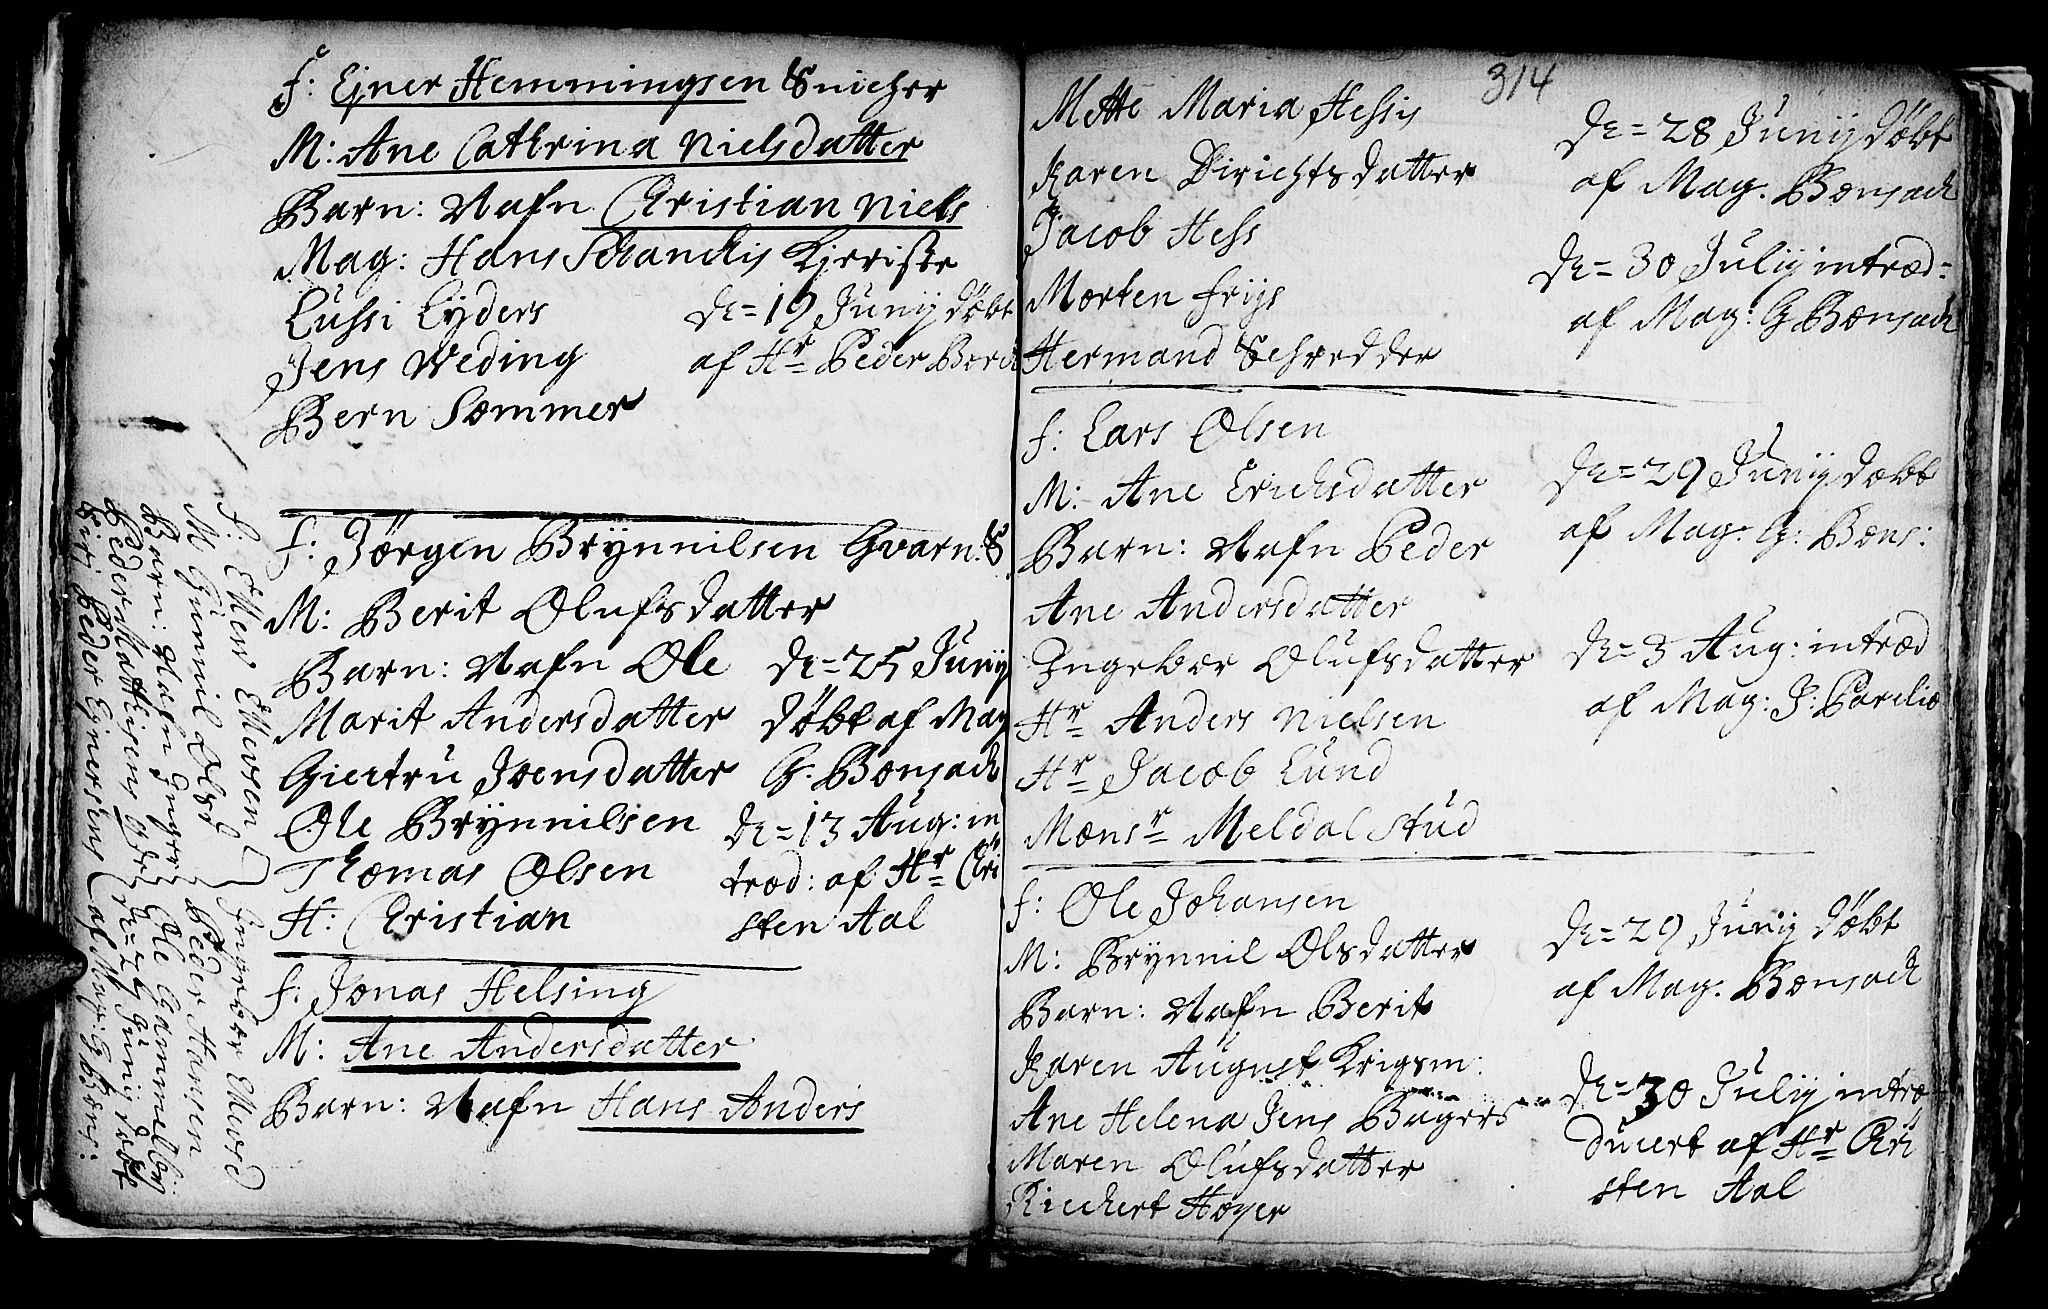 F: Ejner Hemmingsen Snicher
M: Ane Cathrina Nielsdatter
Barn: Nafn Christian Niels
Mag: Hans Schanchis Kieriste
Lussi Lyders
Jens Weding
Bern Sommer
de= 19 Junij døbt
af Hr Peder
f: Jørgen Brynnilsen Gvarn: S
M: Berit Olufsdatter
Barn: Nafn Ole
Marit Andersdatter
Giertru Joensdatter
Ole Brynnilsen
Thomas Olsen
H: Christian
de= 25 Junij
døbt af Mag
G. Bonsach
de= 13 Aug: in
trod: af Hr Chri
sten Aal
f: Jonas Helsing
M: Ane Andersdatter
Barn: Nafn Hans Anders
F: Ellev Ellevsen
M Gunnil Olsd
Barn: Nafn Inger
Peder Matthisens
Siri Peder Ejnersens
Ingebor Ellevsd
Peder Hansen
Ole Gammelbor
de= 24 Junij døbt
af Mag: G Bons:
314
Mette Maria Hessis
Karen Dirichtsdatter
Jacob Hess
Morten friis
Hermand Schredder
de= 28 Junij døbt
af Mag. Bonsach
de= 30 Julij introd=
af Mag: G Bonsach
f: Lars Olsen
M: Ane Erichsdatter
Barn: Nafn Peder
Ane Andersdatter
Ingebor Olufsdatter
Hr Anders Nielsen
Hr Jacob Lund
Monsr Meldal Stud
de= 29 Junij døbt
af Mag. G: Bons:
de= 3 Aug: introd
af Mag: J: Parelio
f: Ole Johansen
M: Brynnil Olsdatter
Barn: Nafn Berit
Karen August Krigsm:
Ane Helena Jens Bagers
Maren Olufsdatter
Ricchert Høyer
de= 29 Junij døbt
af Mag. Bonsach
de= 30 Julij intro=
ducert af Hr Chri
sten Aal